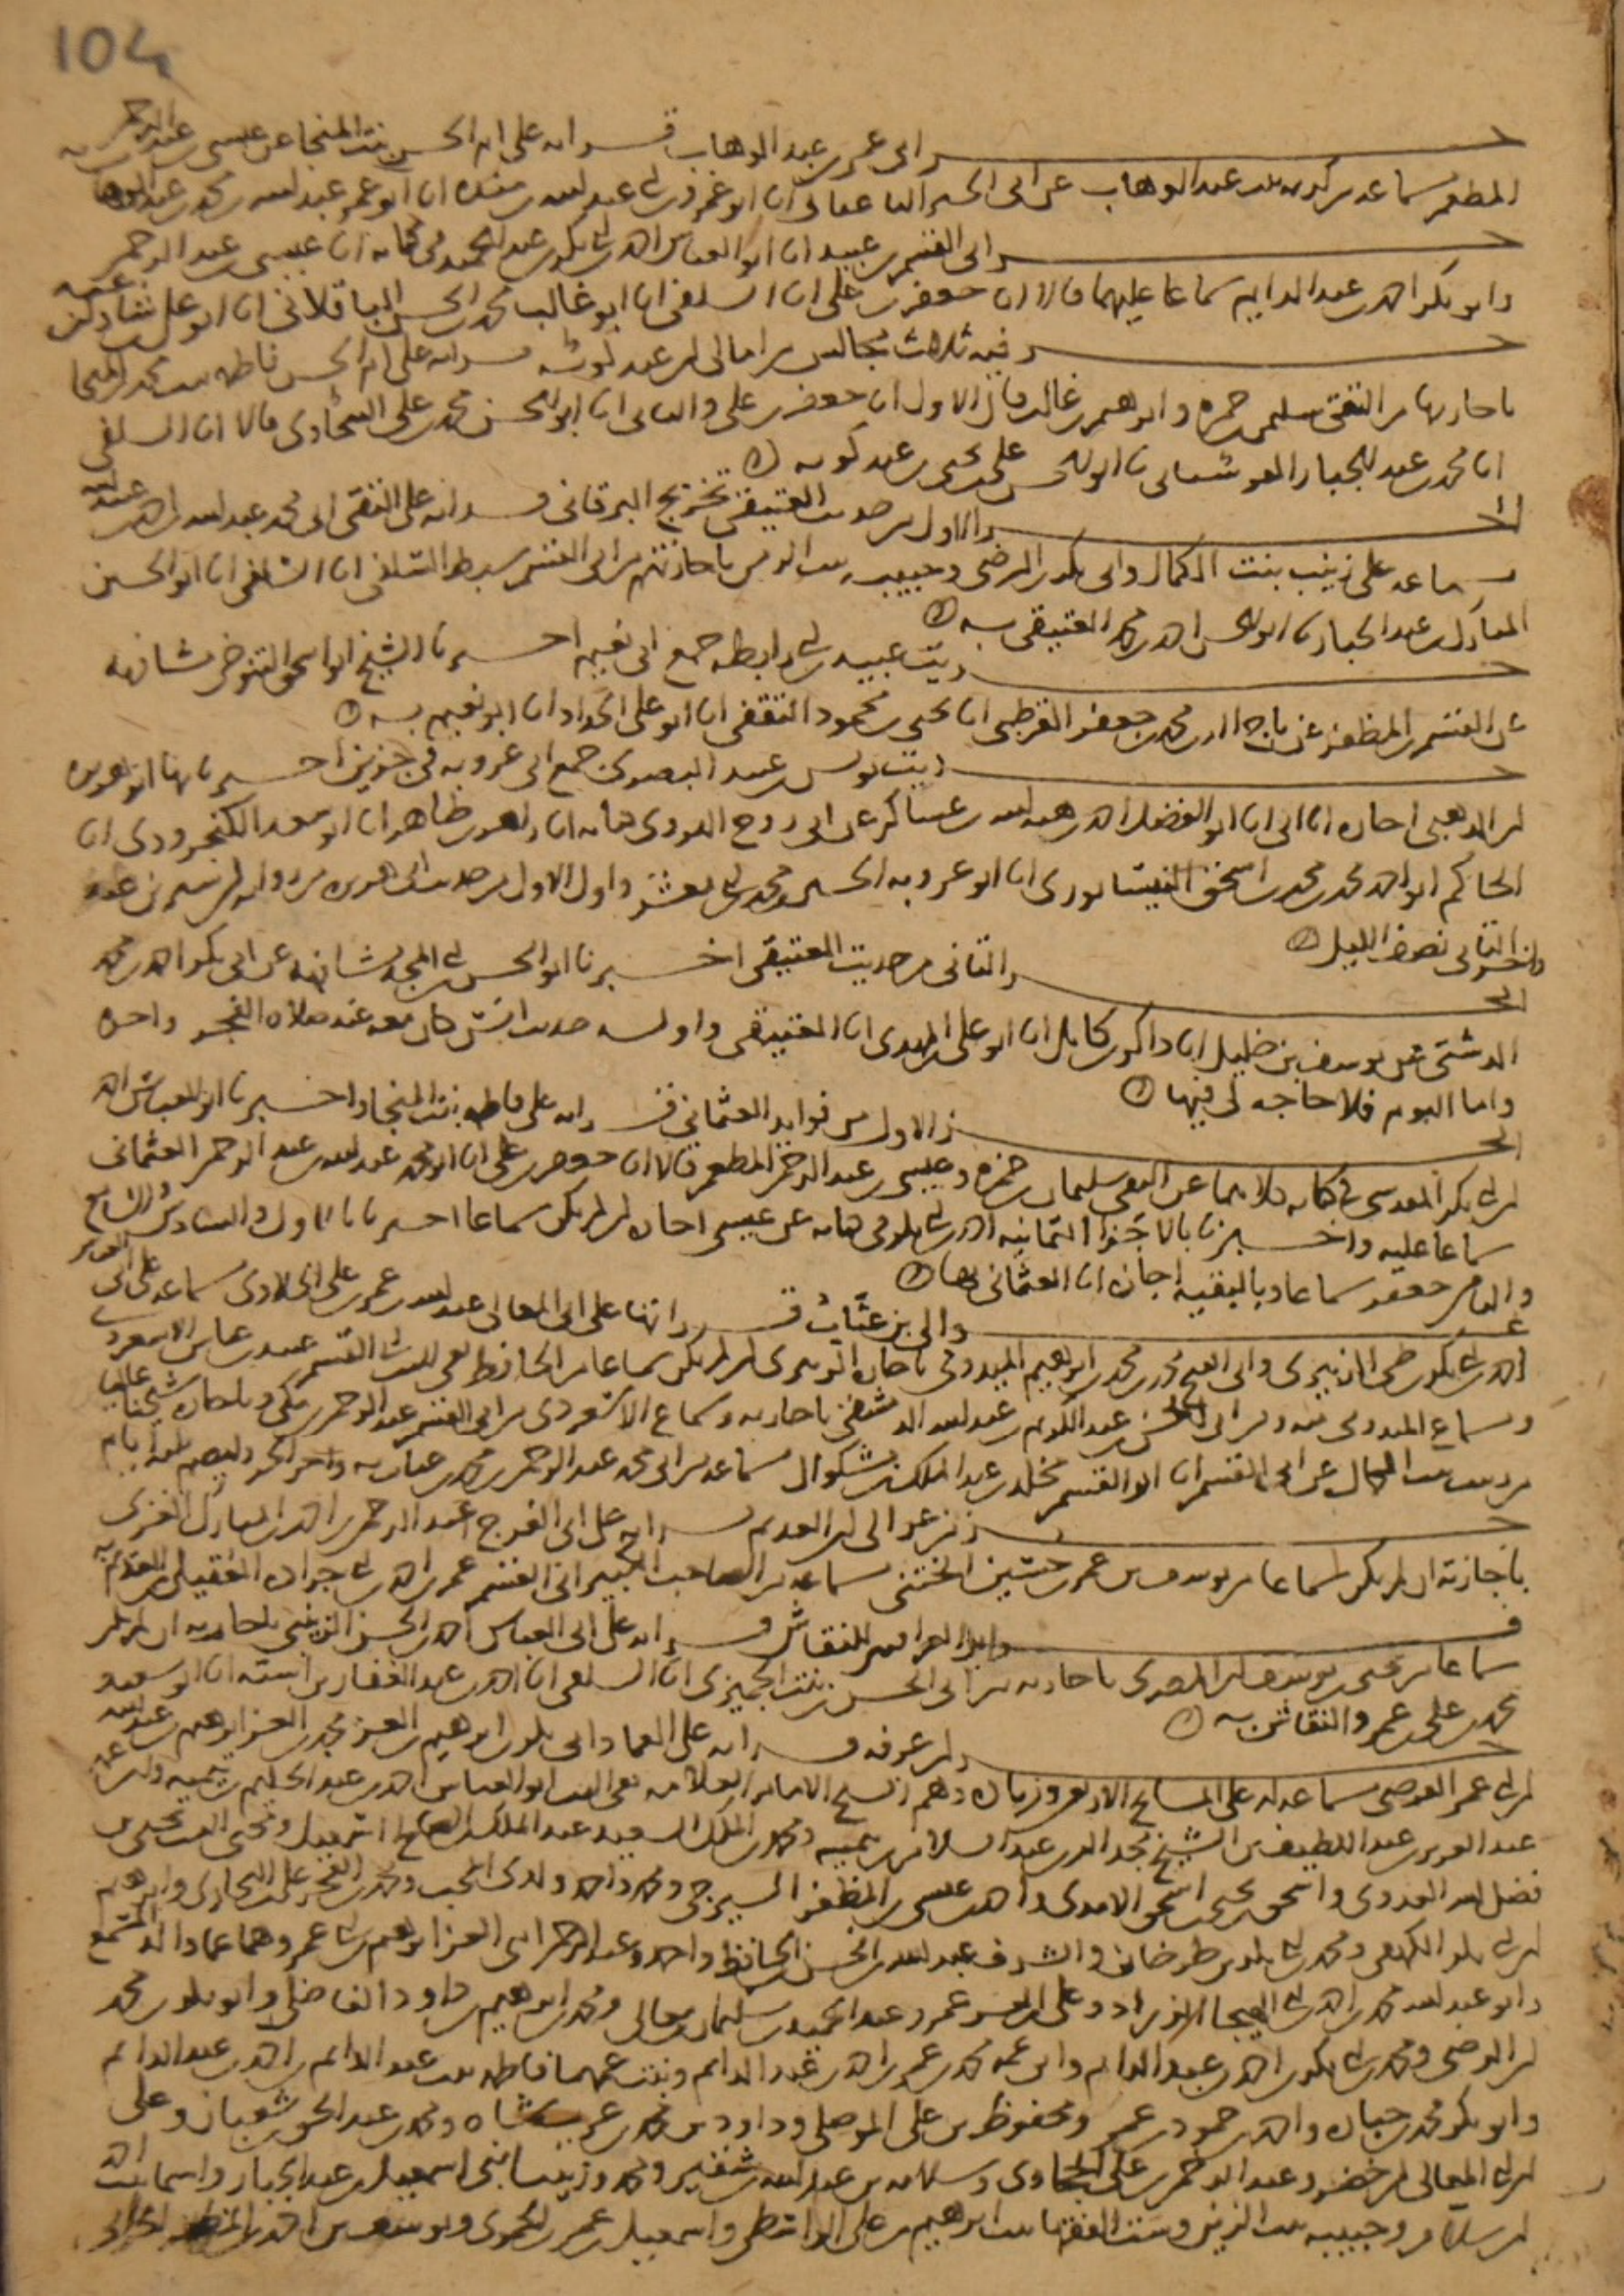 104
جـــــزء ابى عمر بن عبد الوهاب قـــراته على ام الحسن بنت المنجا عن عيسى بن عبد الرحمن
المطعم سماعه من كريمه بنت عبد الوهاب عن ابى الخير الباغبان انا ابو عمرو بن ابى عبد الله بن منده انا ابو عمر عبد الله بن محمد بن عبد الوهاب به
جـــــزء ابى القسم بن عبيد انا ابو العباس احمد بن ابى بكر بن عبد الحميد فى كتابه انا عيسى بن عبد الرحمن
وابو بكر احمد بن عبد الدايم سماعا عليهما قالا انا جعفر بن على انا السلفى انا ابو غالب محمد بن الحسن الباقلانى انا ابو على بن شاذان عنه
جـــــزء فيه ثلاث مجالس من امالى ابن عبد كويه قـــراته على ام الحسن فاطمه بنت محمد بن المنجا
باجازتها من التقى سليمن بن حمزه وابرهيم بن غالب قال الاول انا جعفر بن على والثانى انا ابو الحسن محمد بن على السخاوى قالا انا السلفى
انا محمد بن عبد الجبار الفرسانى نا ابو الحسن على بن يحيى بن عبد كويه
الجـــــزء الاول من حديث العتيقى تخريج البرقانى قـــراته على التقى ابى محمد عبد الله بن احمد بن عبيد الله
بسماعه على زينب بنت الكمال وابى بكر بن الرضى وحبيبه بنت الزين باجازتهم من ابى القسم سبط السلفى انا السلفى انا ابو الحسين
المبارك بن عبد الجبار نا ابو الحسن احمد بن محمد العتيقى به
حـــــديث عبيده بن ابى رابطه جمع ابى نعيم اخـــبرنا الشيخ ابو اسحق التنوخى مشافهه
عن القسم بن المظفر عن تاج الدين محمد بن جعفر القرطبى انا يحيى بن محمود الثقفى انا ابو على الحداد انا ابو نعيم به
حـــــديث يونس بن عبيد البصرى جمع ابى عروبه فى جزئين اخـــبرنا بهما ابو هريره
ابن الذهبى اجازه انا ابى انا ابو الفضل احمد بن هبه الله بن عساكر عن ابى روح الهروى كتابه انا زاهر بن طاهر انا ابو سعد الكنجرودى انا
الحاكم ابو احمد محمد بن محمد بن اسحق النيسابورى انا ابو عروبه الحسين بن محمد بن ابى معشر واول الاول من حديث ابى هريره من روايه ابن سيرين عنه
واخر الثانى نصف الليل
الجـــــزء الثانى من حديث العتيقى اخـــبرنا ابو الحسن بن ابى المجد مشافهه عن ابى بكر احمد بن محمد
الدشتى عن يوسف بن خليل انا ذاكر بن كامل انا ابو على المهدى انا العتيقى واولـــه حديث انس كان معه عند صلاه الفجر واخره
واما اليوم فلا حاجه لى فيها
الجـــــزء الاول من فوايد العثمانى قـــراته على فاطمه بنت المنجا واخـــبرنا ابو العباس احمد
ابن ابى بكر المقدسى فى كتابه كلاهما عن التقى سليمان بن حمزه وعيسى بن عبد الرحمن المطعم قالا انا جعفر بن على انا ابو محمد عبد الله بن عبد الرحمن العثمانى
سماعا عليه واخـــبرنا بالاجزا الثمانيه احمد بن ابى بكر فى كتابه عن عيسى اجازه ان لم يكن سماعا اخبرنا بالاول والسادس والسابع
والثامن جعفر سماعا وبالبقيه اجازه انا العثمانى بها
عـــــوالى بن عتاب قـــراتها على ابى المعالى عبد الله بن عمر بن على الحلاوى بسماعه على ابى
احمد بن ابى بكر بن طى الزبيرى وابى الفتح محمد بن محمد بن ابرهيم الميدومى باجازه الزبيرى ان لم يكن سماعا من الحافظ تقى الدين ابى القسم عبيد بن عباس الاسعردى
وسماع الميدومى منه ومن ابى الحسن بن عبد الكريم بن عبد الله الدمشقى باجازته وسماع الاسعردى من ابى القسم عبد الرحمن بن مكى وباجازه شيخنا عاليا
من زينب بنت الكمال عن ابى القسم انا ابو القسم مخلد بن عبد الملك بن بشكوال سماعه من ابى محمد عبد الرحمن بن محمد بن عتاب به واخر الجزء وليصم ثلثه ايام
جـــــزء من عوالى ابن العديم قـــراته على ابى الفرج عبد الرحمن بن احمد بن المبارك الغزى
باجازته ان لم يكن سماعا من يوسف بن عمر بن حسين الختنى بسماعه من الصاحب الكبير ابى القسم عمر بن احمد بن ابى جراده العقيلى ابن العديم به
فـــــوايد العراقيين للنقاش قـــراته على ابى العباس احمد بن الحسن الزينبى باجازته ان لم يكن
سماعا من يحيى بن يوسف ابن المصرى باجازته من ابى الحسن بن بنت الجميزى انا السلفى انا احمد بن عبد الغفار بن اشته انا ابو سعيد
محمد بن على بن عمرو النقاش به
جـــــزء ابن عرفه قـــراته على العماد ابى بكر بن ابرهيم بن العز محمد بن العز ابرهيم بن عبد الله
ابن ابى عمر الفرضى بسماعه له على المشايخ الاربعه وزياده وهم الشيخ الامام العلامه تقى الدين ابو العباس احمد بن عبد الحليم بن تيميه وابن عمه
عبد العزيز بن عبد اللطيف بن الشيخ مجد الدين عبد السلام بن تيميه ومحمد بن الملك السعيد عبد الملك بن الصالح اسمعيل ومحيى الدين يحيى بن
فضل الله العدوى واسحق بن يحيى بن اسحق الامدى واحمد بن عيسى بن المظفر السيرجى ومحمد واحمد ولدى المحب ومحمد بن الفخر على بن البخارى وابرهيم
ابن ابى بكر الكهفى ومحمد بن ابى بكر بن طرخان والشرف عبد الله بن الحسن بن الحافظ واحمد وعبد الرحمن ابنى العز ابرهيم بن ابى عمر وهما عما والد المسمع
وابو عبد الله محمد بن احمد بن ابى الهيجا بن الزراد وعلى بن العز عمر وعبد الحميد بن سليمان بن معالى ومحمد بن ابرهيم بن داود الفاضلى وابو بكر بن محمد
ابن الرضى ومحمد بن ابى بكر بن احمد بن عبد الدايم وابن عمه محمد بن عمر بن احمد بن عبد الدايم وبنت عمهما فاطمه بنت عبد الدايم بن احمد بن عبد الدايم
وابو بكر محمد بن جباره واحمد بن حمود بن عمر ومحفوظ بن على الموصلى وداود بن محمد بن عربشاه ومحمد بن عبد الحق بن شعبان وعلى
ابن ابى المعالى بن خضر وعبد الرحمن بن على الحجاوى وسلامه بن عبد الله بن شقير ومحمد وزينب ابنى اسمعيل بن عبد الجبار واسما بنت احمد
ابن سلام وحبيبه بنت الزين وست الفقها بنت ابرهيم بن على الواسطى واسمعيل بن عمر الحموى ويوسف بن احمد بن المظفر